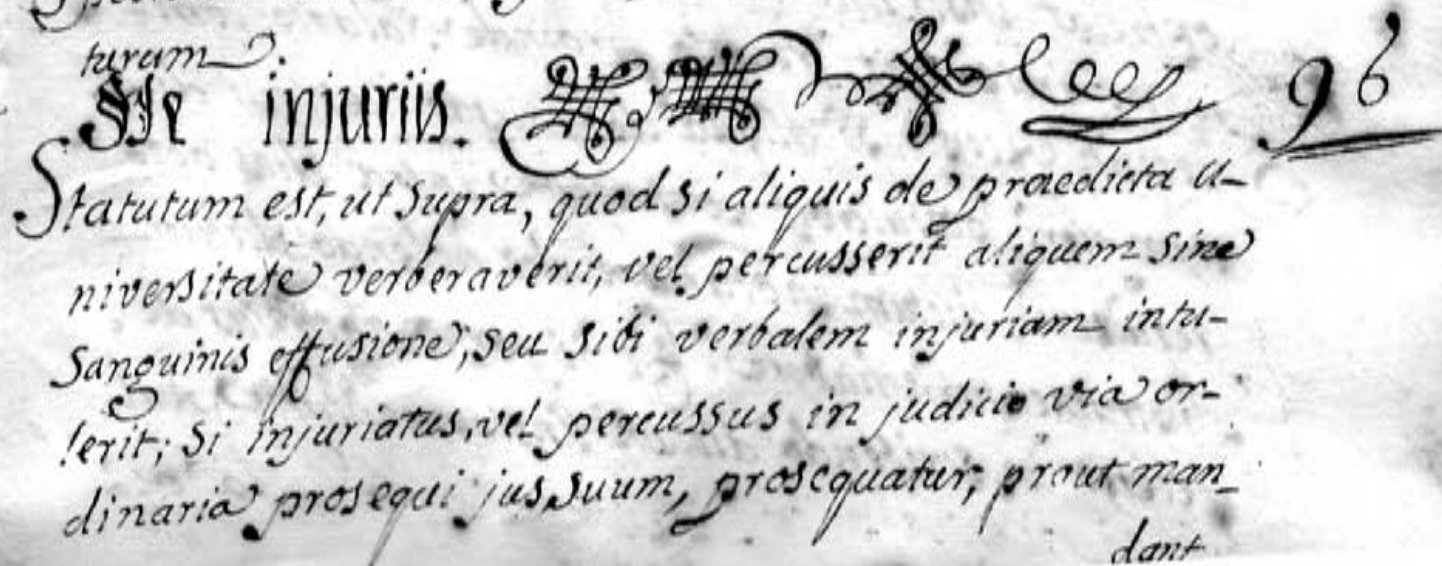 turum.
De injuriis. 96
Statutum est, ut supra, quod si aliquis de praedicta u-
niversitate verberaverit, vel percusserit aliquem sine
sanguinis effusione, seu sibi verbalem injuriam intu-
lerit; si injuriatus, vel percussus in judicio via or-
dinaria prosequi jus suum, prosequatur, prout man-
dant